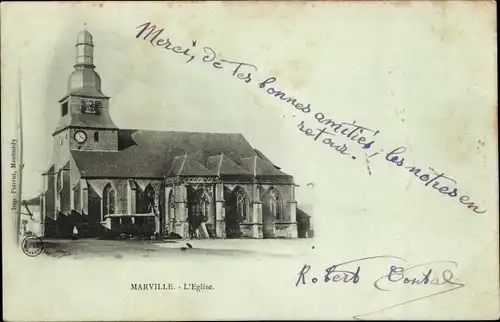 Merci, de tes bonnes amitiés! les notres en
retour.
Imp. Pierrot, Montmédy
MARVILLE. - L'Eglise.
Robert